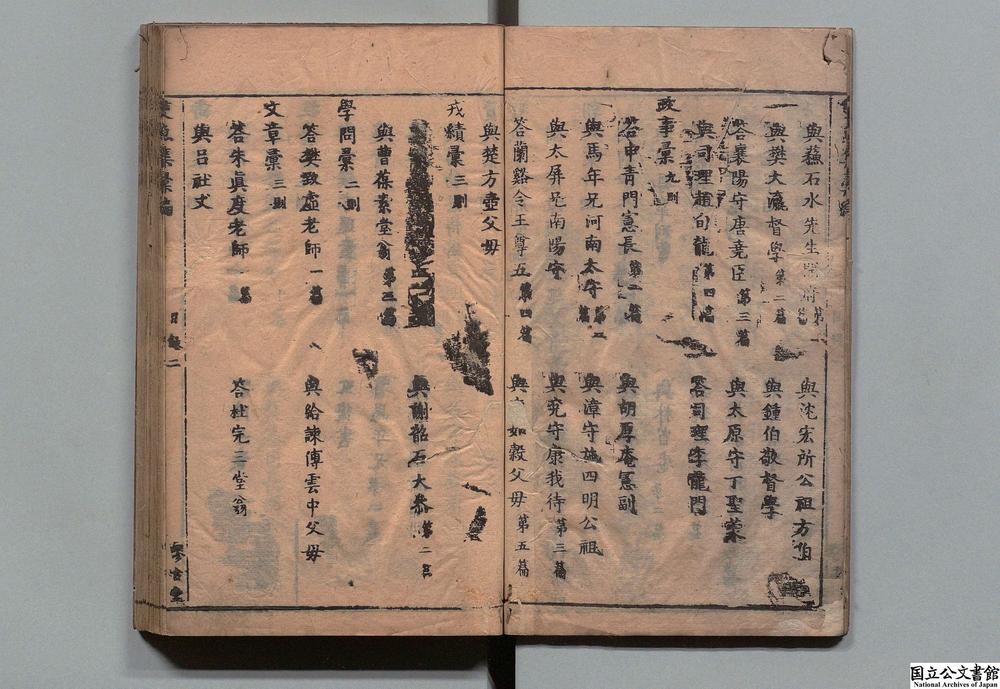 與蘇石水先生
與沈宏所公祖方伯
與樊大瀛督學 第二篇
與鍾伯敬督學
答襄陽守唐堯臣 第三篇
與太原守丁聖蒙
與司理趙旬龍 第四篇
答司理李龍門
政事彙 九則
答申青門憲長 第二篇
與胡厚庵憲副
與馬年兄河南太守
與漳守施四明公祖
與太屏兄南陽守
與兖守康我待 第三篇
答蘭谿令王尊五 第四篇
與 如穀父母 第五篇
與楚方壺父母
戎績彙 三則
與謝韶石大叅 第二
與曹葆素堂翁 第三篇
學問彙 二則
答樊致虛老師 一篇
與給諫傅雲中父母
文章彙 三則
答朱眞度老師 一篇
答杜完三堂翁
與呂社丈
魚集彙編
目錄二
國立公文書館
National Archives of Japan